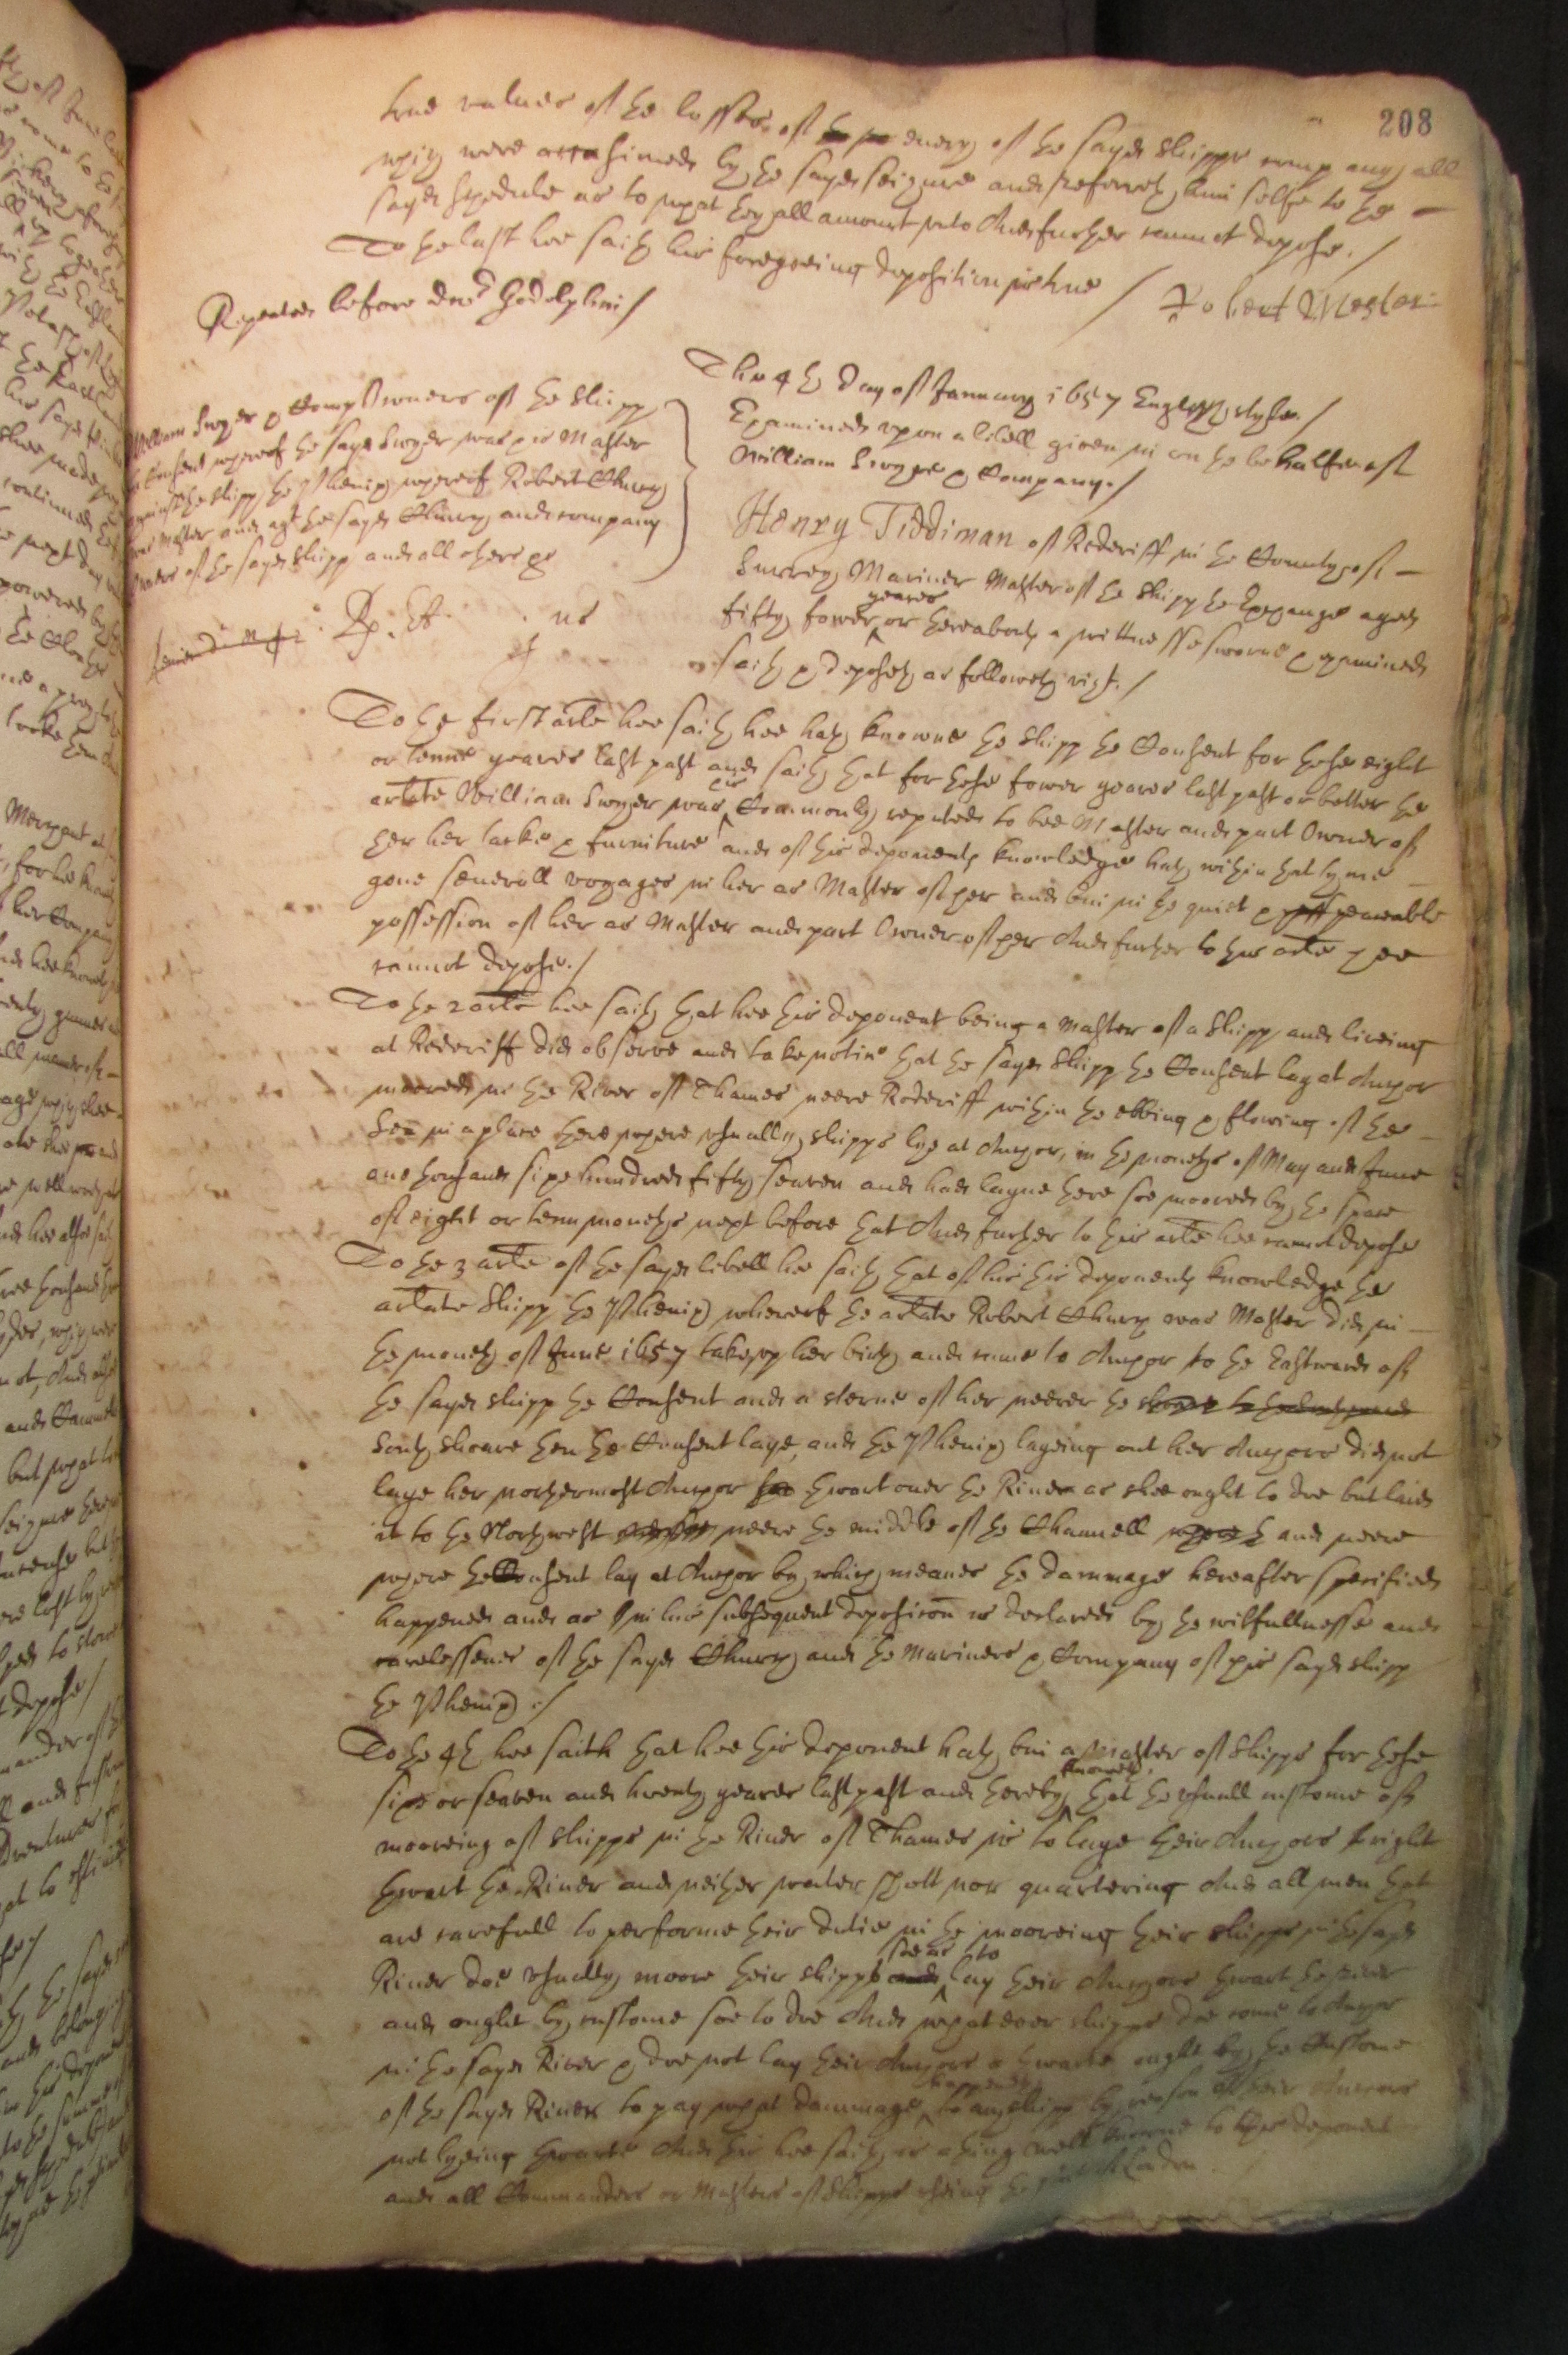 208
true values of the losses of every of the sayd shipps company all
which were occasioned by the sayd seizure and referreth him selfe to the
sayd schedule as to what they all amount unto And further cannot depose./
To the last hee saith his foregoeing deposition is true /
Repeated before doctor Godolphin /
Robert
The 4th day of January 1657 English style./
Examined upon a libell given in on the behalfe of
William Swyer & Company./
William Swyer & Comp Owners of the Shipp
the Consent whereof the sayd Swyer was is Master
against the shipp the Phenix whereof Robert Chury
was Master and agt the sayd Chury and company
Owners of the sayd Shipp and all others &c
Henry Tiddiman of Rederiff in the County of
Surrey Mariner Master of the Shipp the Exchange aged
yeares
fifty fower or thereabouts a wittnesse sworne & examined
saith & deposeth as followeth vizt./
To the first arte hee saith hee hath knowne the Shipp the Consent for these eight
or tenne yeares last past and saith that for these fower yeares last past or better the
artate William Swyer was Commonly reputed to bee Master and part Owner of
her her tackle & furniture and of this deponents knowledge hath within that tyme
gone severall voyages in her as Master of her and bin in the quiet & peaceable
possession of her as Master and part Owner of her And further to this arte hee
cannot depose./
To the 2 arte hee saith that hee this deponent being a Master of a Shipp and liveing
at Rederiff did observe and take notice that the sayd Shipp the Consent lay at Anchor
moored in the River of Thames neere Rederiff within the ebbing & flowing of the
Sea in a place there where usually shipps lye at Anchor, in the moneths of May and June
one thousand sixe hundred fifty seaven and had layne there soe moored by the space
of eight or tenn moneths next before that And further to this arte hee cannot depose
To the 3 arte of the sayd libell hee saith that of his this deponents knowledge the
artate Shipp the Phenix whereof the artate Robert Chury was Master did in
the moneth of June 1657 take up her birth and come to Anchor to the Eastward of
the sayd shipp the Consent and a sterne of her neerer the
South shoare then the Consent laye, and the Phenix layeing out her Anchors did not
laye her northermost Anchor thwart over the River as shee ought to doe but laid
it to the Northwest neere the middle of the Channell and neere
where the Consent lay at Anchor by which meanes the dammage hereafter specified
happened and as in his subsequent deposicon is declared by the wilfullnesse and
carelessenes of the sayd Chury and the Mariners & Company of his sayd shipp
the Phenix ./
To the 4th hee saith that hee this deponent hath bin a Master of Shipps for these
knoweth
sixe or seaven and twenty yeares last past and thereby that the usuall custome of
mooreing of shipps in the River of Thames is to laye their Anchors right
thwart the River and neither water shott nor quartering And all men that
are carefull to performe their dutie in the mooreing their shipps in the sayd
soe as to
River doe usually moore their shipps and lay their Anchors thwart the river
and ought by custome soe to doe And what ever shipps doe come to Anchor
in the sayd River & doe not lay their Anchors a thwarte ought by the Custome
happeneth
of the sayd River to pay what dammage to any shipp by reason of their Anchors
not lyeing thwart And this hee saith is a thing well knowne to this deponent
and all Commanders or Masters of Shipps useing the port of London